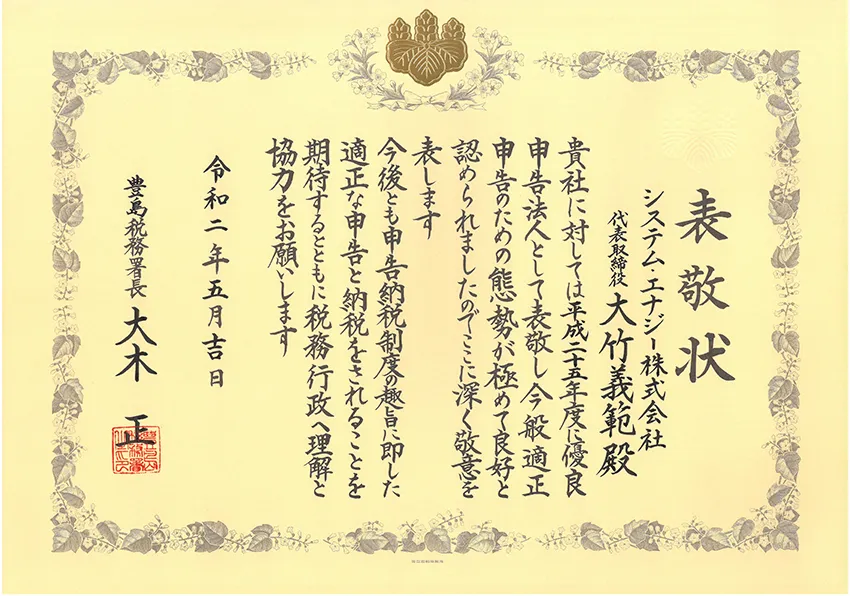 表敬状
システム・エナジー株式会社
代表取締役 大竹義範殿
貴社に対しては平成二十五年度に優良
申告法人として表敬し今般適正
申告のための態勢が極めて良好と
認められましたのでここに深く敬意を
表します
今後とも申告納税制度の趣旨に即した
適正な申告と納税をされることを
期待するとともに税務行政へ理解と
協力をお願いします
令和二年五月吉日
豊島税務署長 大木 正